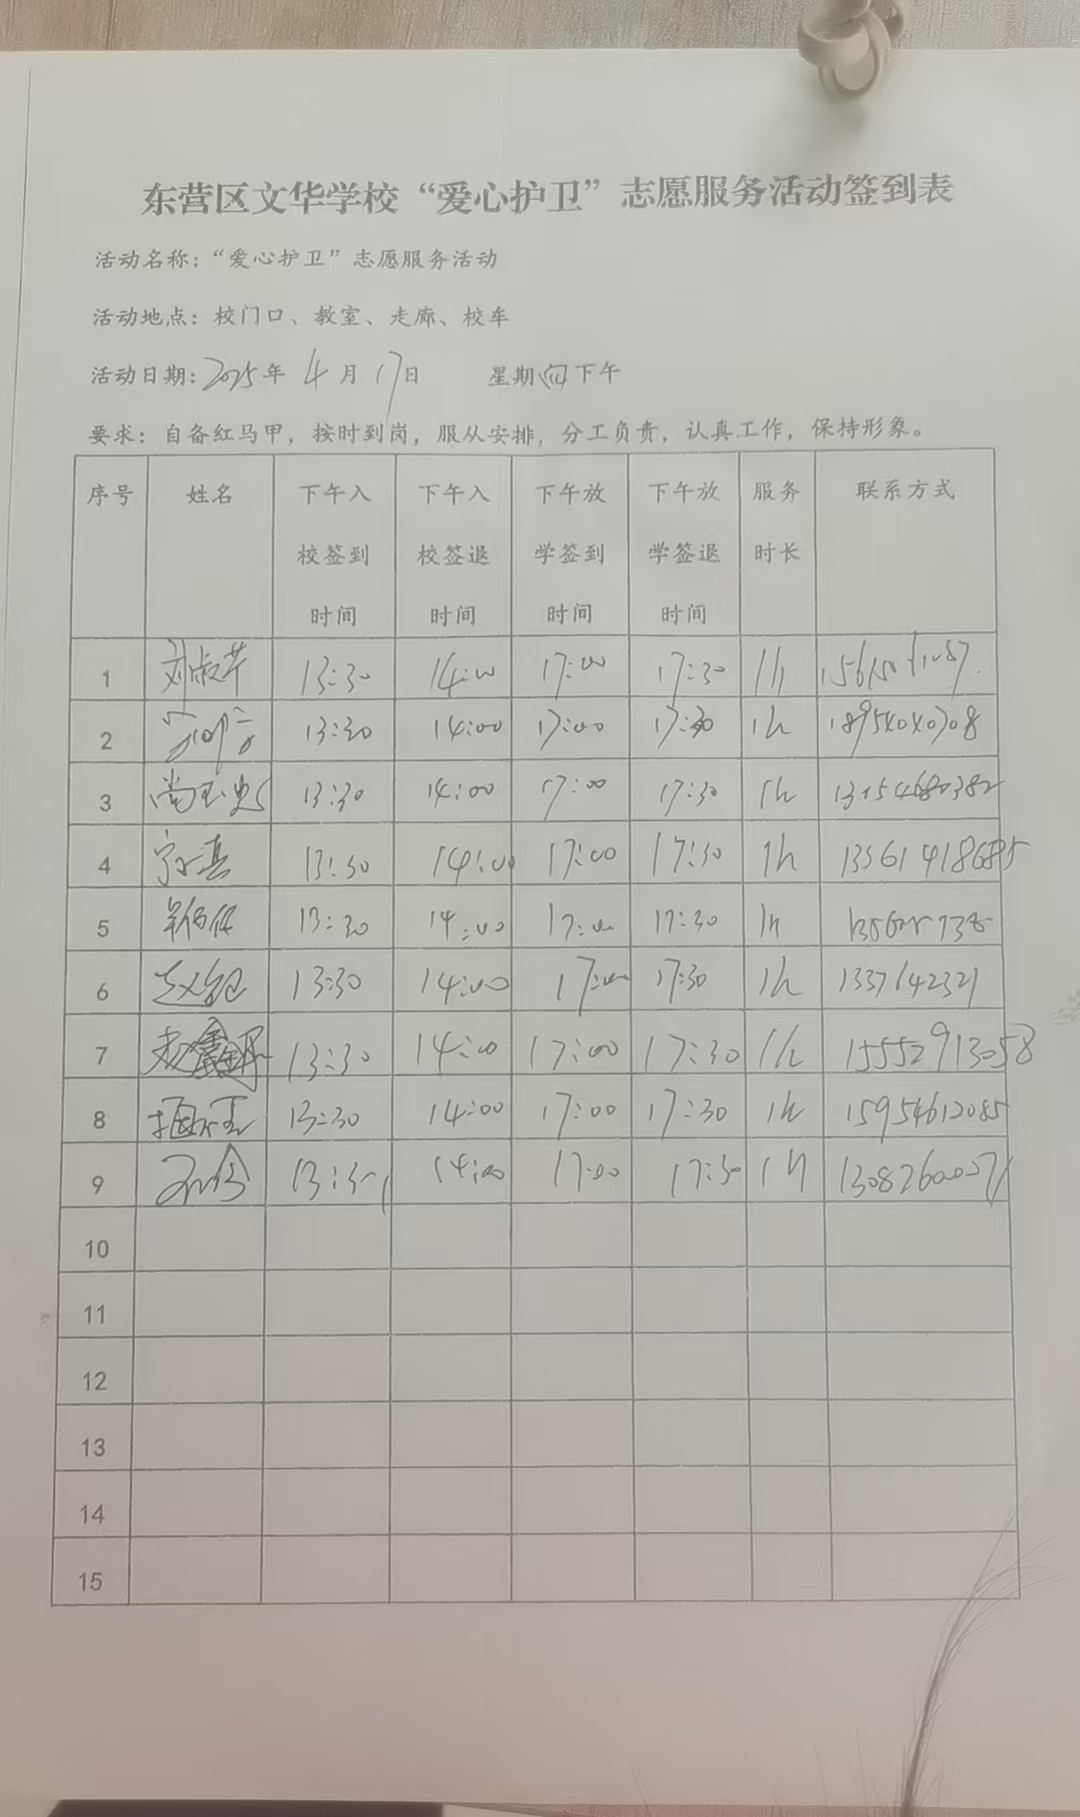 东营区文华学校“爱心护卫”志愿服务活动签到表
活动名称：“爱心护卫”志愿服务活动
活动地点：校门口、教室、走廊、校车
活动日期：2025年 4 月 17日 星期四下午
要求：自备红马甲，按时到岗，服从安排，分工负责，认真工作，保持形象。
序号 姓名 下午入校签到时间 下午入校签退时间 下午放学签到时间 下午放学签退时间 服务时长 联系方式
1 刘淑芹 13:30 14:00 17:00 17:30 1h
2 13:30 14:00 17:00 17:30 1h
3 13:30 14:00 17:00 17:30 1h 13154680382
4 13:30 14:00 17:00 17:30 1h
5 13:30 14:00 17:00 17:30 1h
6 13:30 14:00 17:00 17:30 1h 1337642321
7 13:30 14:00 17:00 17:30 1h 15552913058
8 13:30 14:00 17:00 17:30 1h 15954612085
9 13:30 14:00 17:00 17:30 1h
10
11
12
13
14
15